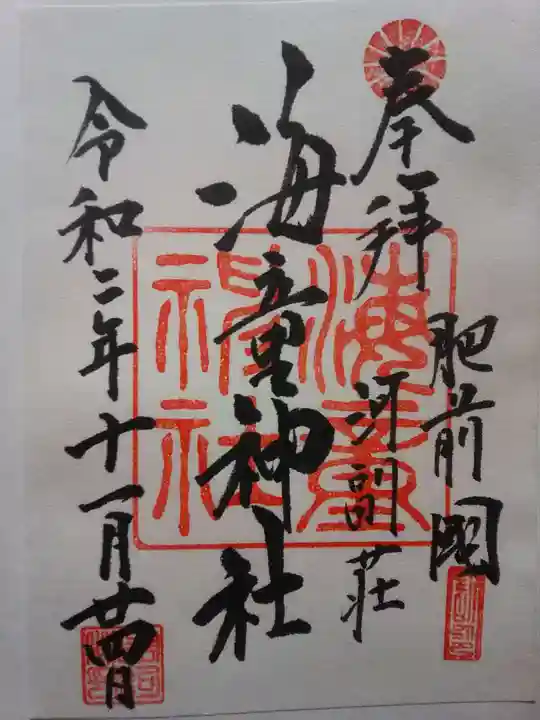 奉拝
肥前國
河副荘
海童神社
海童神社
令和二年十一月廿四日